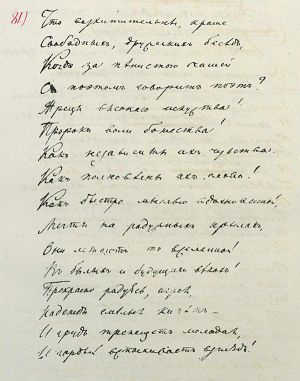 81)
Что восхитительней, краше
Свободныхъ, дружескихъ бесѣдъ,
Когда за пѣнистою чашей
Съ поэтомъ говоритъ поэтъ?
Жрецы высокаго искуства!
Пророки воли божества!
Какъ независимы ихъ чувства,
Какъ полновѣсны ихъ слова!
Какъ быстро мыслью вдохновенной,
Мечты на радужныхъ крылахъ,
Они летаютъ по вселенной
Въ былыхъ и будущихъ вѣкахъ!
Прекрасно радуясь, играя,
Надежды смѣлыя кипятъ,
И грудь трепещетъ молодая,
И гордый вспыхиваетъ взглядъ!